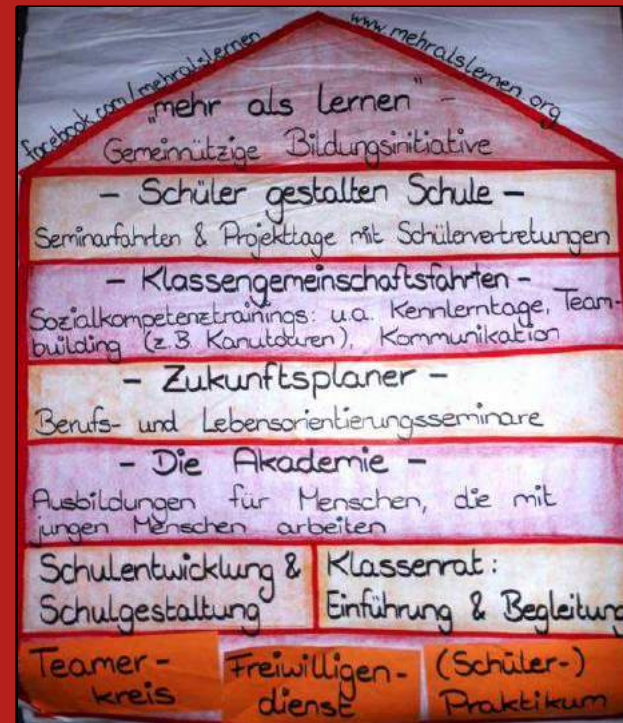 facebook.com/mehralslernen
www.mehralslernen.org
"mehr als lernen" -
Gemeinnützige Bildungsinitiative
- Schüler gestalten Schule -
Seminarfahrten & Projekttage mit Schülervertretungen
- Klassengemeinschaftsfahrten -
Sozialkompetenztrainings: u.a. Kennlerntage, Team-
building (z.B. Kanutouren), Kommunikation
- Zukunftsplaner -
Berufs- und Lebensorientierungsseminare
- Die Akademie -
Ausbildungen für Menschen, die mit
jungen Menschen arbeiten
Schulentwicklung &
Schulgestaltung
Klassenrat:
Einführung & Begleitung
Teamer-
kreis
Freiwilligen-
dienst
(Schüler-)
Praktikum